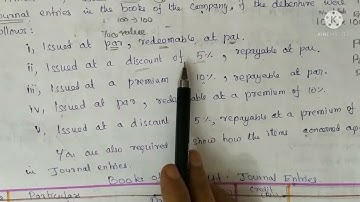 Journal entries in the books of the Company, if the debenture were
100 → 100
follows: Face value
i, Issued at par, redeemable at par.
ii, Issued at a discount of 5%, repayable at par.
iii, Issued at a premium 10%, repayable at par.
iv, Issued at par, redeemable at a premium of 10%.
v, Issued at a discount 5%, repayable at a premium of
You are also required show how the items concerned
in Journal Entries.
Books of Journal Entries
Particular credit